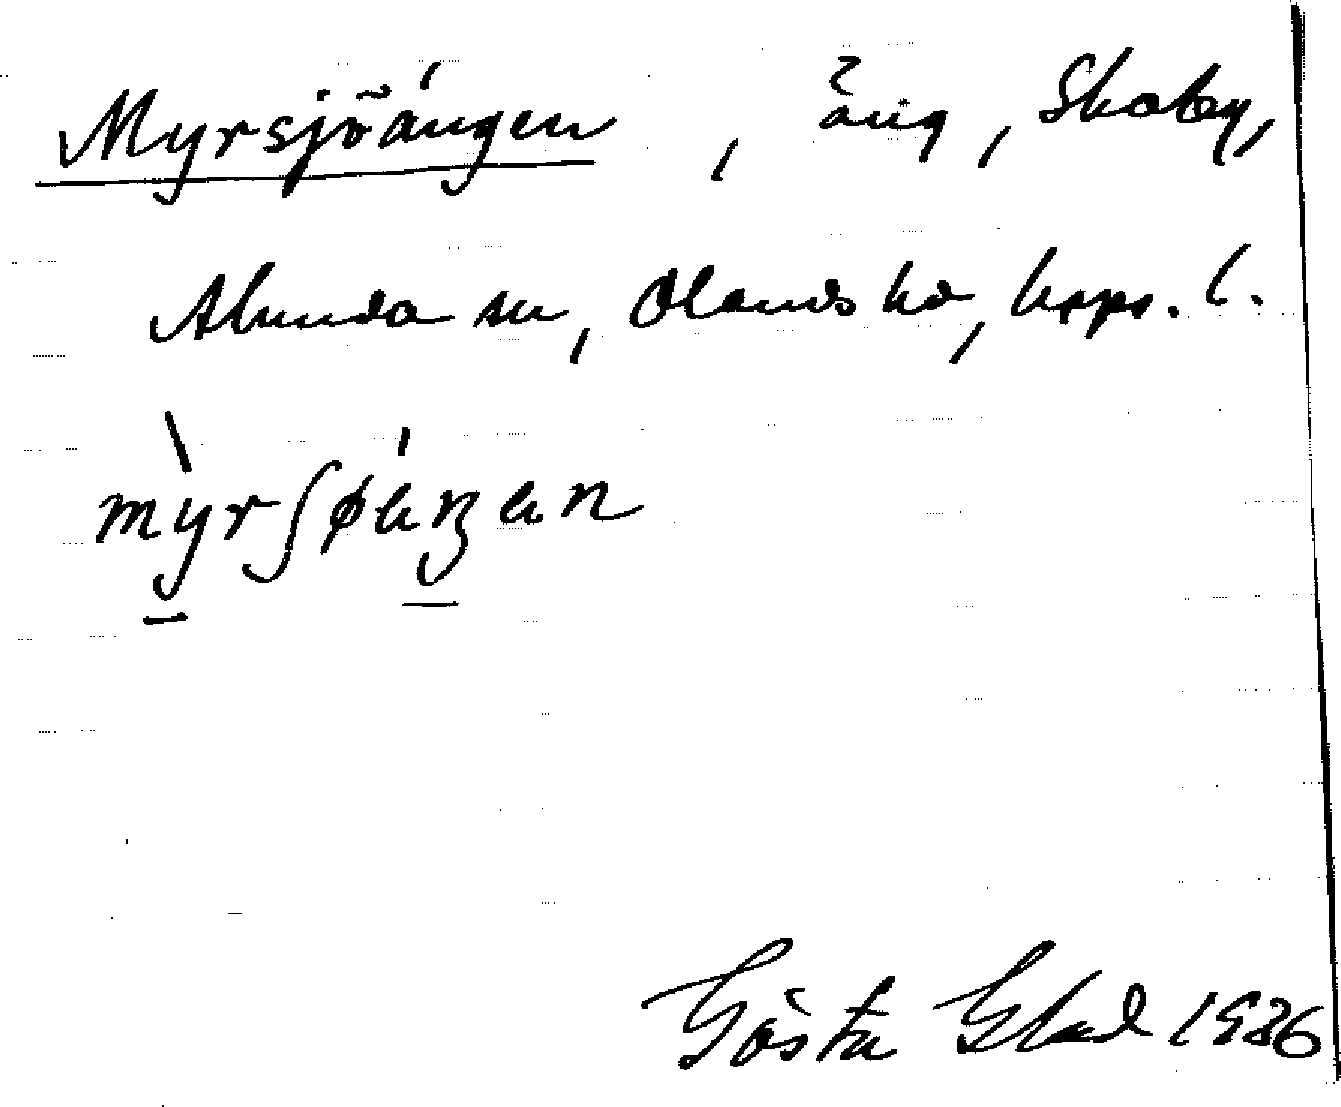 Myrsjöängen, äng, Skoby,
Alunda sn, Olands hd, Upps. l.
Gösta Ekad 1936